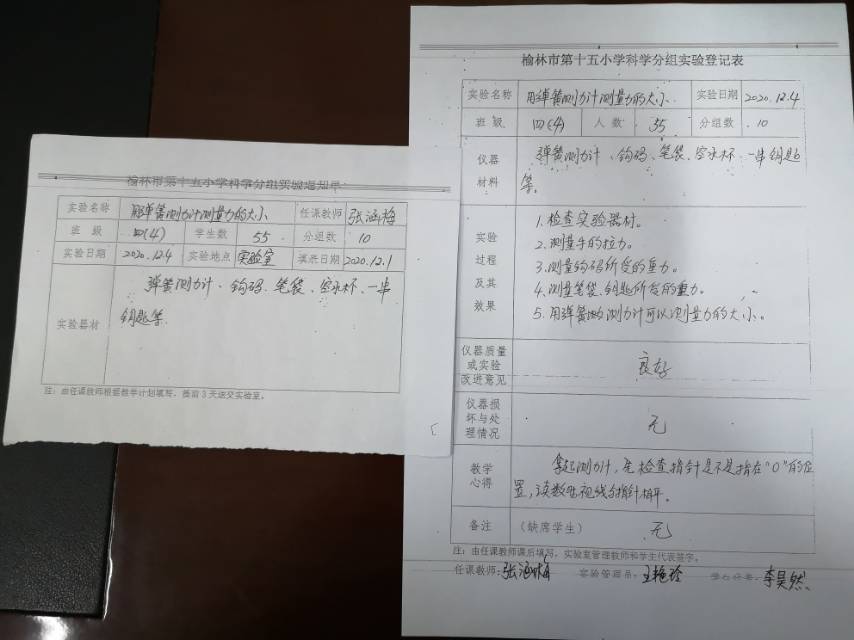 榆林市第十五小学科学分组实验通知单
实验名称 用弹簧测力计测量力的大小 任课教师 张涵梅
班 级 四(4) 学生数 55 分组数 10
实验日期 2020.12.4 实验地点 实验室 填表日期 2020.12.1
实验器材 弹簧测力计、钩码、笔袋、空水杯、一串
钥匙等.
注：由任课教师根据教学计划填写，提前3天送交实验室。
榆林市第十五小学科学分组实验登记表
实验名称 用弹簧测力计测量力的大小. 实验日期 2020.12.4
班 级 四(4) 人 数 55 分组数 10
仪器材料 弹簧测力计、钩码、笔袋、空水杯、一串钥匙
等。
实验过程及其效果
1.检查实验器材。
2.测量手的拉力。
3.测量钩码所受的重力。
4.测量笔袋、钥匙所受的重力。
5.用弹簧的测力计可以测量力的大小。
仪器质量或实验改进意见 良好
仪器损坏与处理情况 无
教学心得 拿起测力计，先检查指针是不是指在“0”的位
置，读数时视线与指针相平。
备注 (缺席学生) 无
注：由任课教师课后填写，实验室管理教师和学生代表签字。
任课教师：张涵梅 实验管理员：王艳玲 李昊然